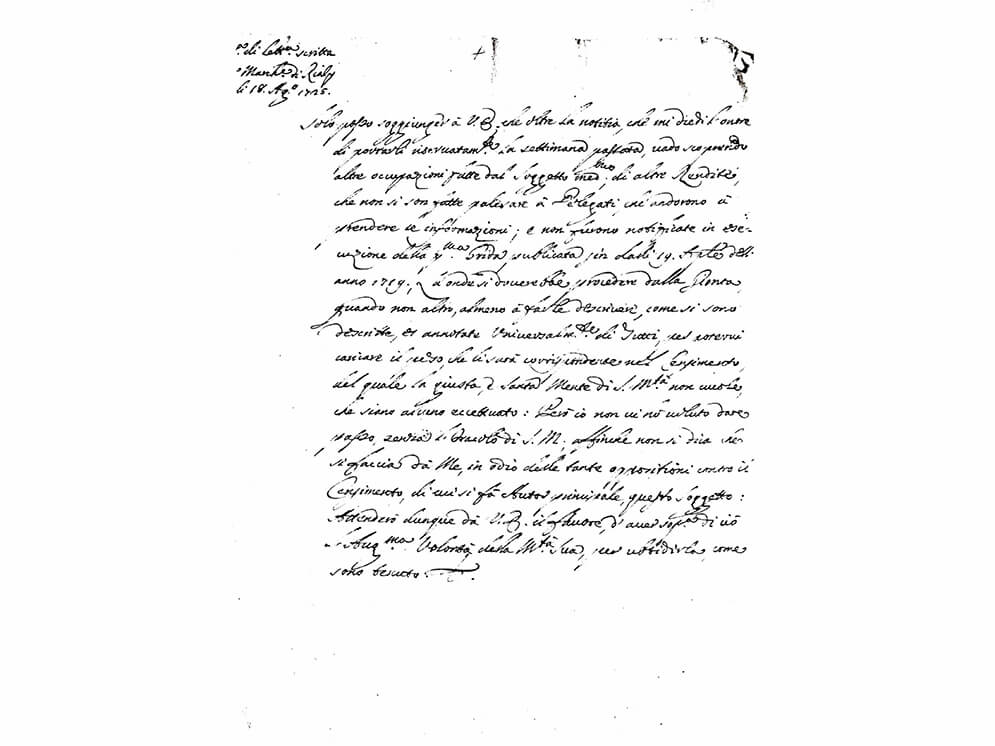 di lett.ra scritta
March.e di Rialp
li 18. Ag.o 1725.
Solo posso soggiunger à V. E., che oltre la notitia, che mi diedi l'onore
di portarli riservatam.te la settimana passata, vado scoprendo
altre occupazioni fatte dal soggetto med.mo, di altre Rendite,
che non si son fatte palesare à Delegati, che andorono à
prendere le informazioni; e non furono notificate in ese-
cuzione della p.ma Grida publicata sin dalli 19. Ap.le dell'
anno 1719; Là onde si doverebbe procedere dalla Gionta
quando non altro, almeno à farle descrivere, come si sono
descritte, et annotate Universalm.te di Tutti, per potervi
caricare il peso, che li sarà corrispondente nel Censimento,
del quale la giusta, e Santa Mente di S. M.tà non vuole,
che siano alcuno eccettuato: Però io non vi hò voluto dare
passo, senza l'Oracolo di S. M., affinche non si dica che
si faccia dà Me, in odio delle tante oppositioni contro il
Censimento, di cui si fà Autor principale, questo soggetto:
Attenderò dunque dà V. E. il favore, d'aver sopra di ciò
l'Aug.ma Volontà, della M.tà Sua, per ubbidirla, come
sono tenuto.